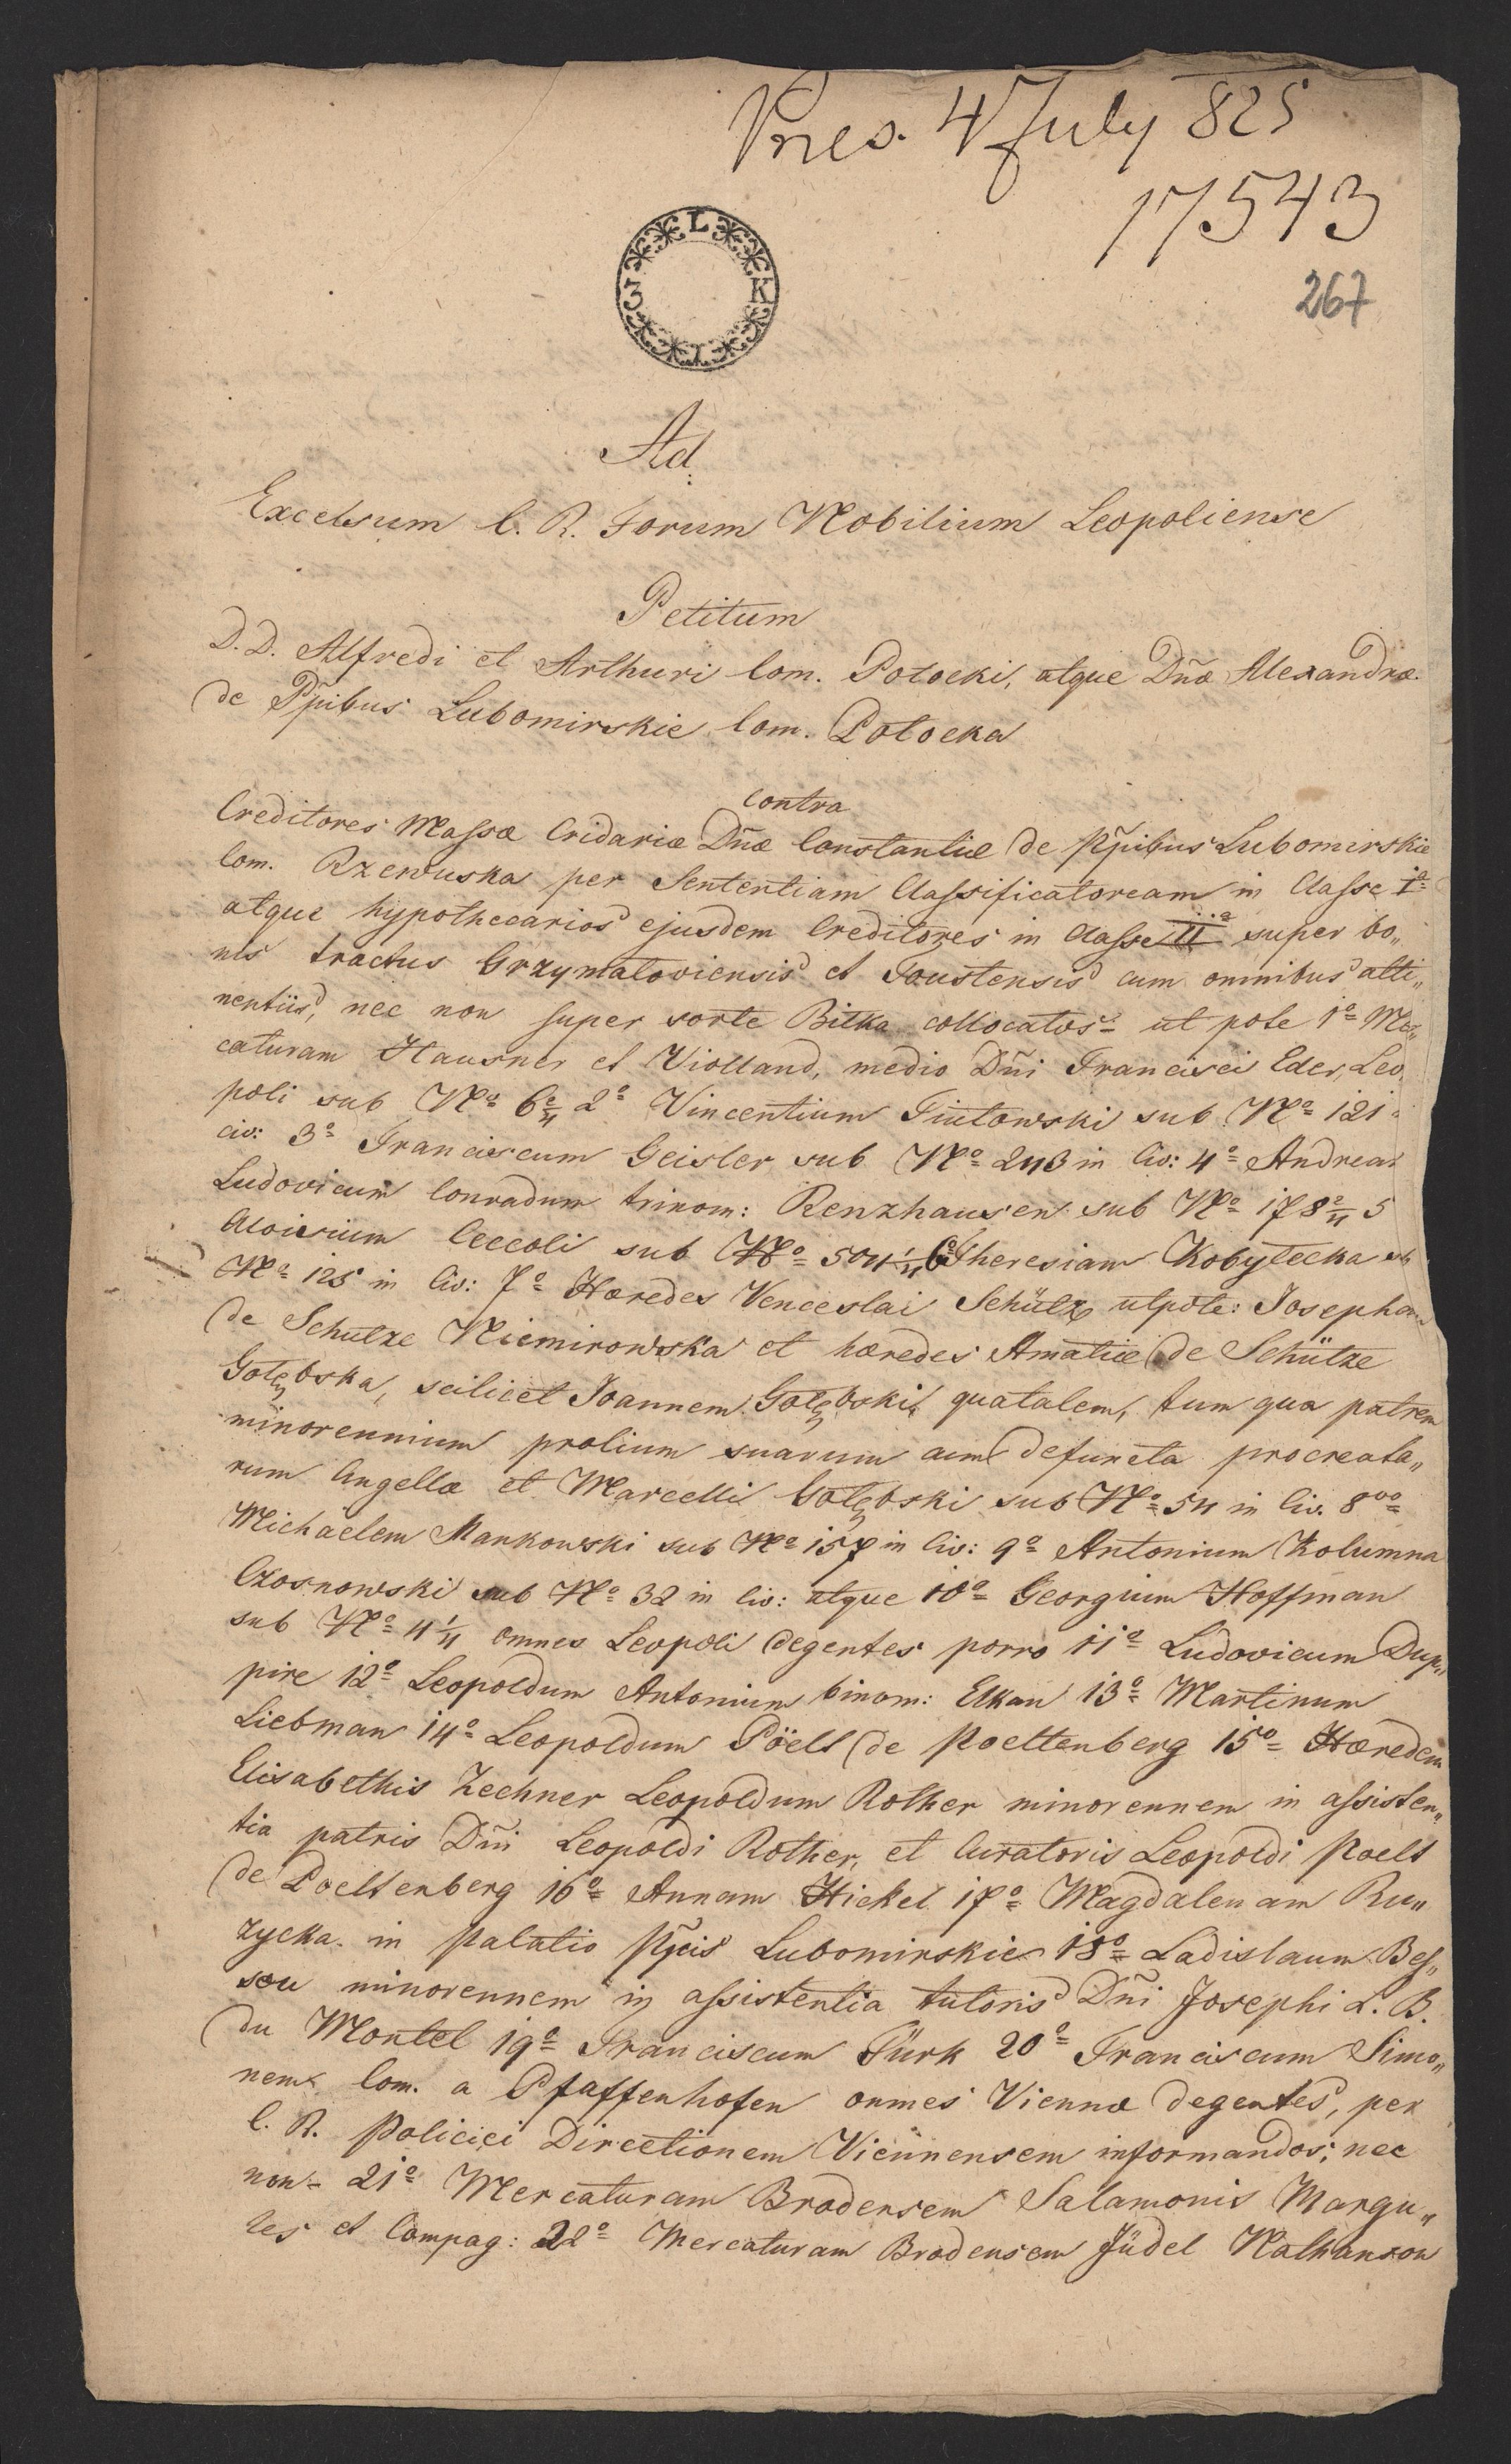 Pres. 4 July 825
17543
267
L
3 K
I
Ad
Excelsum C. R. Forum Nobilium Leopoliense
Petitum
D. D. Alfredi et Arthuri Com. Potocki, atque Dñæ Alexandræ
de Pp̃ibus Lubomirskie Com. Potocka
contra
Creditores Massæ Cridariæ Dñæ Constantiæ de Pp̃ibus Lubomirskie
Com. Rzewuska per Sententiam Classificatoream in Classe I.
atque hypothecarios ejusdem Creditores in Classe II super bo„
nis tractus Grzymaloviensis et Toustensis cum omnibus atti„
nentiis, nec non super sorte Bitka collocatos ut pote 1º Mer„
caturam Hausner et Violland, medio Dñi Francisci Eder, Leo
poli sub Nº 6 2/4 2º Vincentium Tiutowski sub Nº 121
civ: 3º Franciscum Geisler sub Nº 243 in Civ: 4º Andream
Ludovicum Conradum trinom: Renzhausen sub Nº 178 2/4 5
Aloisium Ceccoli sub Nº 504 1/4 6º Theresiam Kobytecka sub
Nº 125 in Civ: 7º Hæredes Venceslai Schütz utpote: Josepham
de Schutze Niemirowska et hæredes Amaliæ de Schütze
Gołębska, scilicet Joannem Gołębski quatalem, tum qua patrem
minorennium prolium suarum cum defuncta procreata„
rum Angellæ et Marcelli Gołębski sub Nº 54 in Civ. 8vo
Michaelem Mankowski sub Nº 157 in Civ: 9º Antonium Kolumna
Czosnowski sub Nº 32 in Civ: atque 10º Georgium Hoffman
sub Nº 4 1/4 omnes Leopoli degentes porro 11º Ludovicum Dup„
pire 12º Leopoldum Antonium binom: Elkan 13º Martinum
Liebman 14º Leopoldum Pöelt de Poeltenberg 15º Hæredem
Elisabethis Zechner Leopoldum Rother minorennem in assisten„
tia patris Dñi Leopoldi Rother, et Curatoris Leopoldi Poelt
de Poeltenberg 16º Annam Hickel 17º Magdalenam Ru„
zycka in Palatio Pp̃cis Lubomirskie 18º Ladislaum Bes„
sou minorennem in assistentia tutoris Dñi Josephi L. B.
du Montel 19º Franciscum Türk 20º Franciscum Simo„
nem Com. a Pfaffenhofen omnes Viennæ degentes, per
C. R. Policiei Directionem Viennensem informandos; nec
non 21º Mercaturam Brodensem Salamonis Margu„
les et Compag: 22º Mercaturam Brodensem Jüdel Nathanson